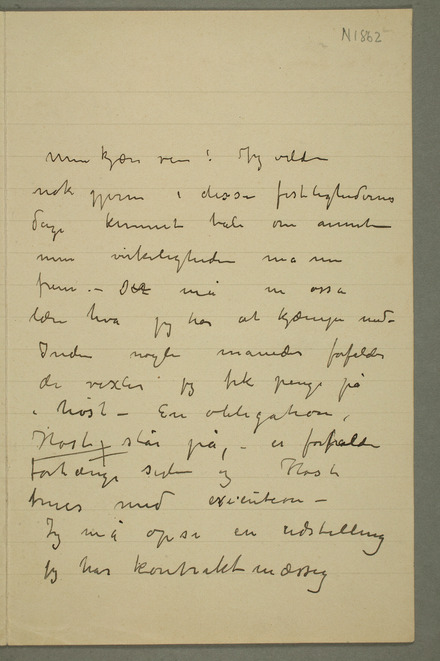 N1862
Min kjære ven! Jeg vilde
nok gjerne i disse festlighedernes
dage kunnet tale om annet
men virkeligheden må nu
frem. – Der må nu osså
lære hva jeg har at kjæmpe med –
Inden nogle måneder forfalder
de vexler jeg fik penge på
i høst – En obligation,
Hosty står på, – er forfalden
for længe siden og Host
trues med execution –
Jeg må opse en udstilling
jeg har kontraktmæssig